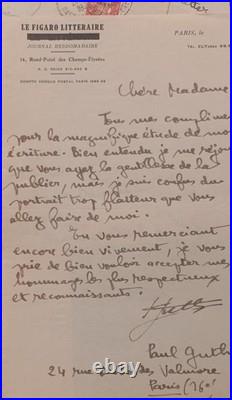 LE FIGARO LITTERAIRE
JOURNAL HEBDOMADAIRE
14, Rond-Point des Champs-Elysées
COMPTE CHEQUE POSTAL PARIS
PARIS, le
Chère Madame
Tous mes compliments
pour la magnifique étude de mon
écriture. Bien entendu je me réjouis
que vous ayez la gentillesse de la
publier, mais je suis confus du
portrait trop flatteur que vous
allez faire de moi.
En vous remerciant
encore bien vivement, je vous
prie de bien vouloir accepter mes
hommages les plus respectueux
et reconnaissants.
Paul Guth
24 rue des Valmore
Paris (16e)
www.collectors.com